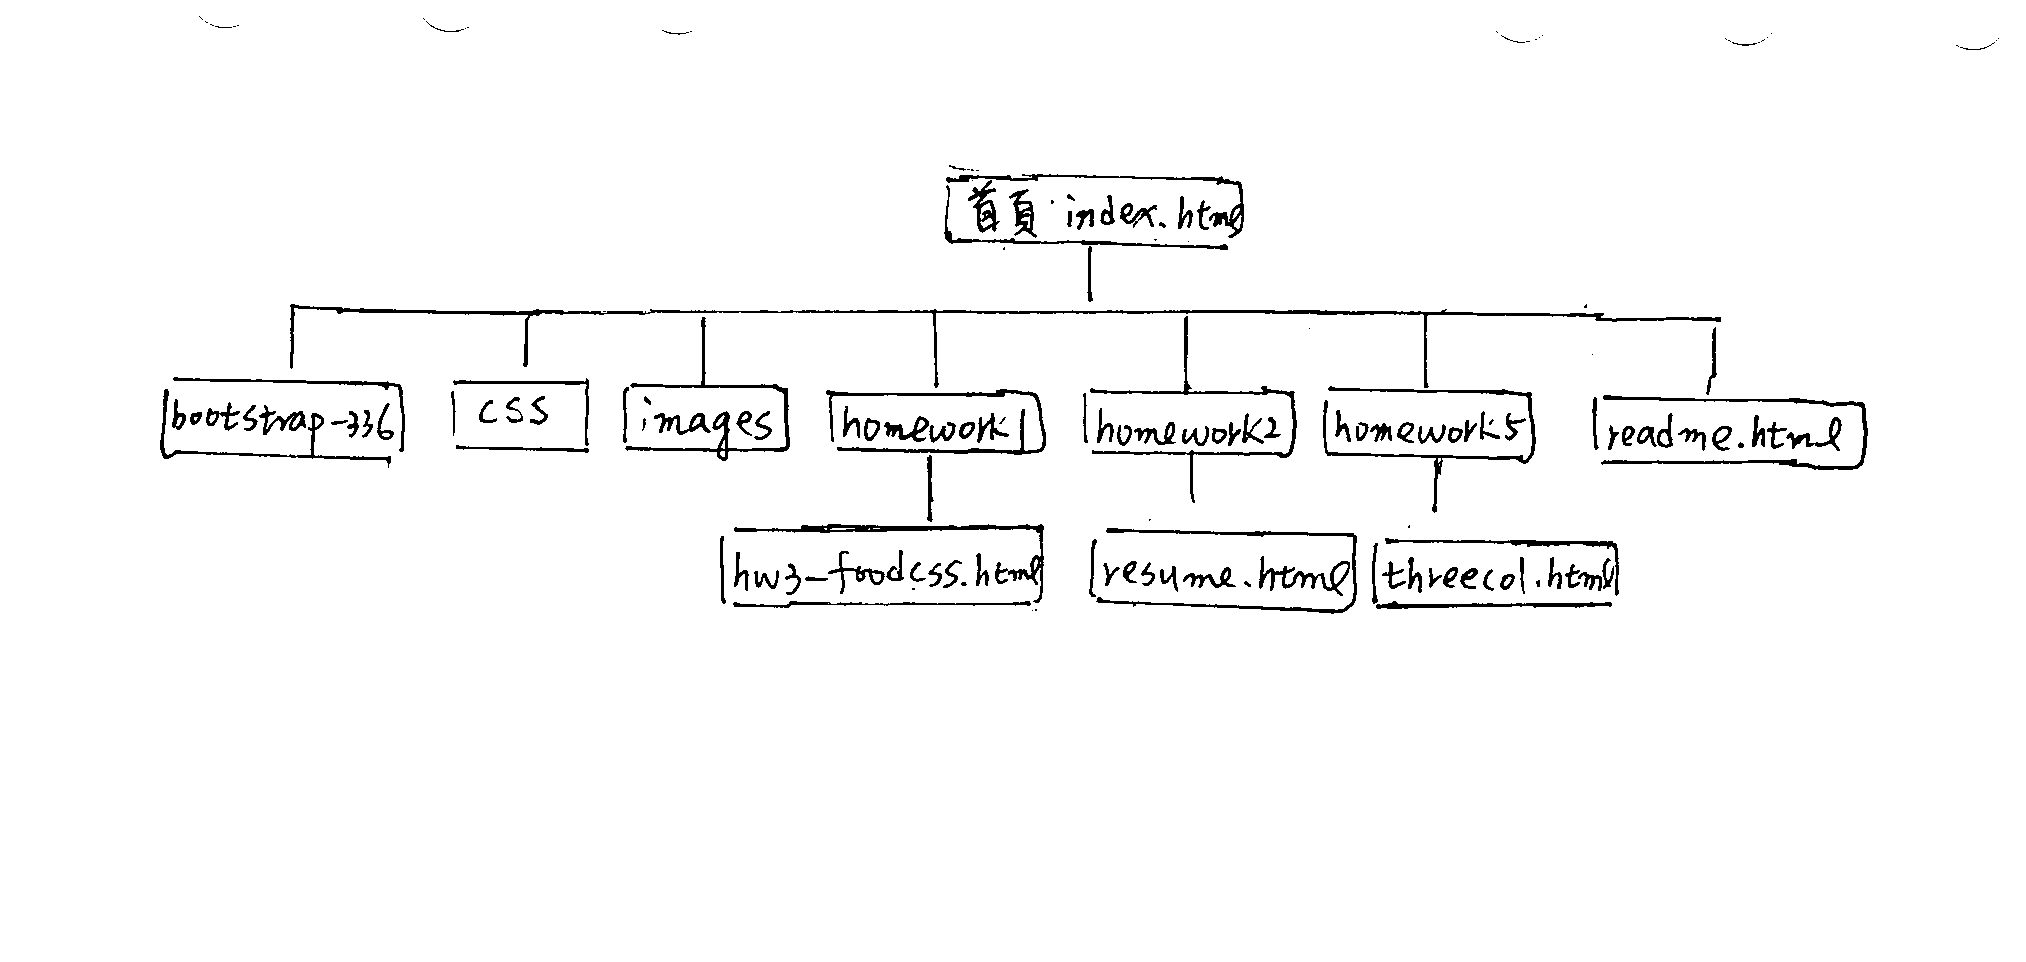 首頁 index.html
bootstrap-336
css
images
homework1
homework2
homework5
readme.html
hw3-foodcss.html
resume.html
threecol.html